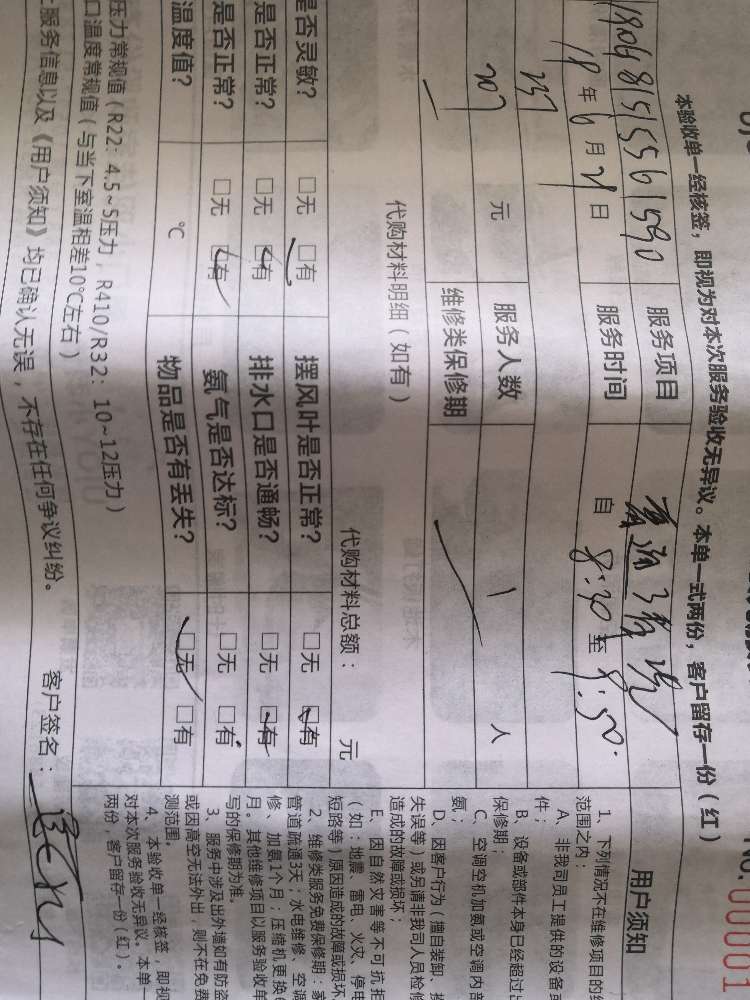 No.00001
本验收单一经核签，即视为对本次服务验收无异议。本单一式两份，客户留存一份（红）
服务项目
18年6月21日
服务时间
自 8:30 至 9:50
元
服务人数
1 人
维修类保修期
代购材料明细（如有）
代购材料总额： 元
是否灵敏？ □无 □有 摆风叶是否正常？ □无 □有
是否正常？ □无 □有 排水口是否通畅？ □无 □有
是否正常？ □无 □有 氨气是否达标？ □无 □有
温度值？ ℃ 物品是否有丢失？ □无 □有
压力常规值（R22：4.5~5压力，R410/R32：10~12压力）
口温度常规值（与当下室温相差10℃左右）
服务信息以及《用户须知》均已确认无误，不存在任何争议纠纷。
客户签名：
用户须知
1、下列情况不在维修项目的
范围之内：
A、非我司员工提供的设备或
件；
B、设备或部件本身已经超过
保修期；
C、空调空机加氨或空调内部
氨；
D、因客户行为（擅自装卸、
失误等）或另请非我司人员检修
造成的故障或损坏；
E、因自然灾害等不可抗拒
（如：地震、雷电、火灾、停电
短路等）原因造成的故障或损坏。
2、维修类服务免费保修期：
管道疏通3天；水电维修、空调
修、加氨1个月；压缩机更换
月。其他维修项目以服务验收单
写的保修期为准。
3、服务中涉及出外墙如有防盗
或因高空无法外出，则不在免费
测范围。
4、本验收单一经核签，即视
对本次服务验收无异议。本单一
两份，客户留存一份（红）。